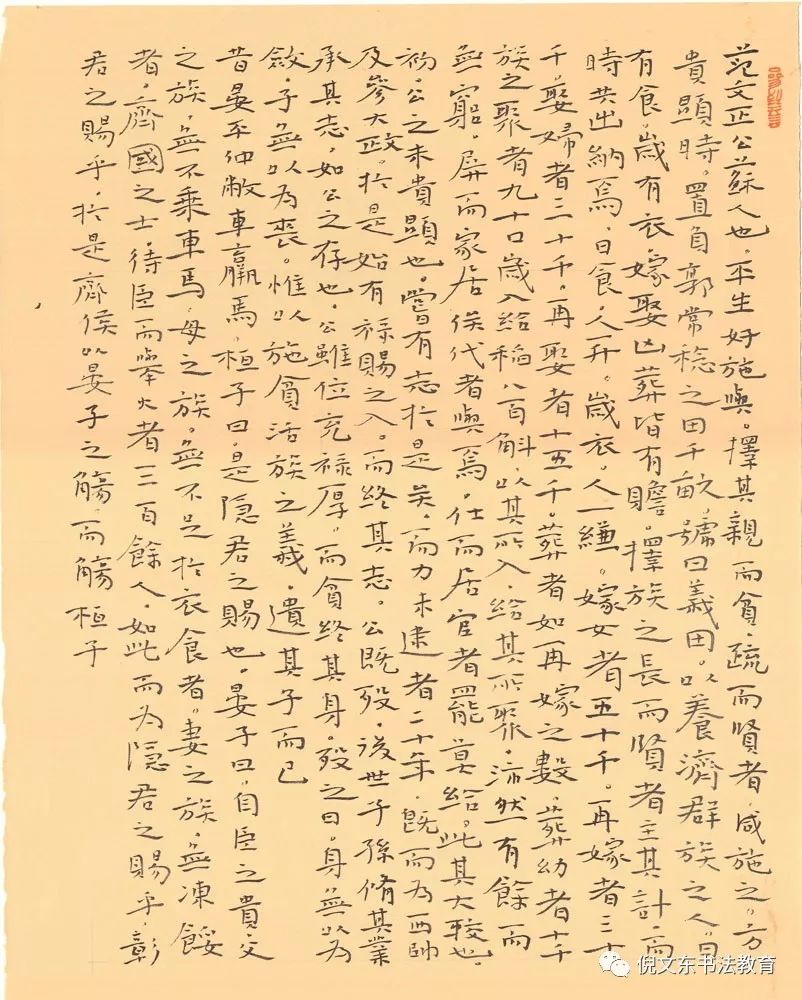 范文正公蘇人也。平生好施與。擇其親而貧。疏而賢者。咸施之。方
貴顯時。置負郭常稔之田千畝。號曰義田。以養濟群族之人。日
有食。歲有衣。嫁娶凶葬皆有贍。擇族之長而賢者主其計。而
時共出納焉。日食。人一升。歲衣。人一縑。嫁女者五十千。再嫁者三十
千。娶婦者三十千。再娶者十五千。葬者如再嫁之數。葬幼者十千
族之聚者九十口。歲入給稻八百斛。以其所入。給其所聚。沛然有餘而
無窮。屏而家居俟代者與焉。仕而居官者罷莫給。此其大較也。
初。公之未貴顯也。嘗有志於是矣。而力未逮者二十年。既而為西帥
及參大政。於是始有祿賜之入。而終其志。公既歿。後世子孫脩其業
承其志。如公之存也。公雖位充祿厚。而貧終其身。歿之日。身無以為
斂。子無以為喪。惟以施貧活族之義。遺其子而已
昔晏平仲敝車羸馬。桓子曰。是隱君之賜也。晏子曰。自臣之貴。父
之族。無不乘車馬。母之族。無不足於衣食者。妻之族。無凍餒
者。齊國之士。待臣而舉火者三百餘人。如此而為隱君之賜乎。彰
君之賜乎。於是齊侯以晏子之觴。而觴桓子
倪文东书法教育